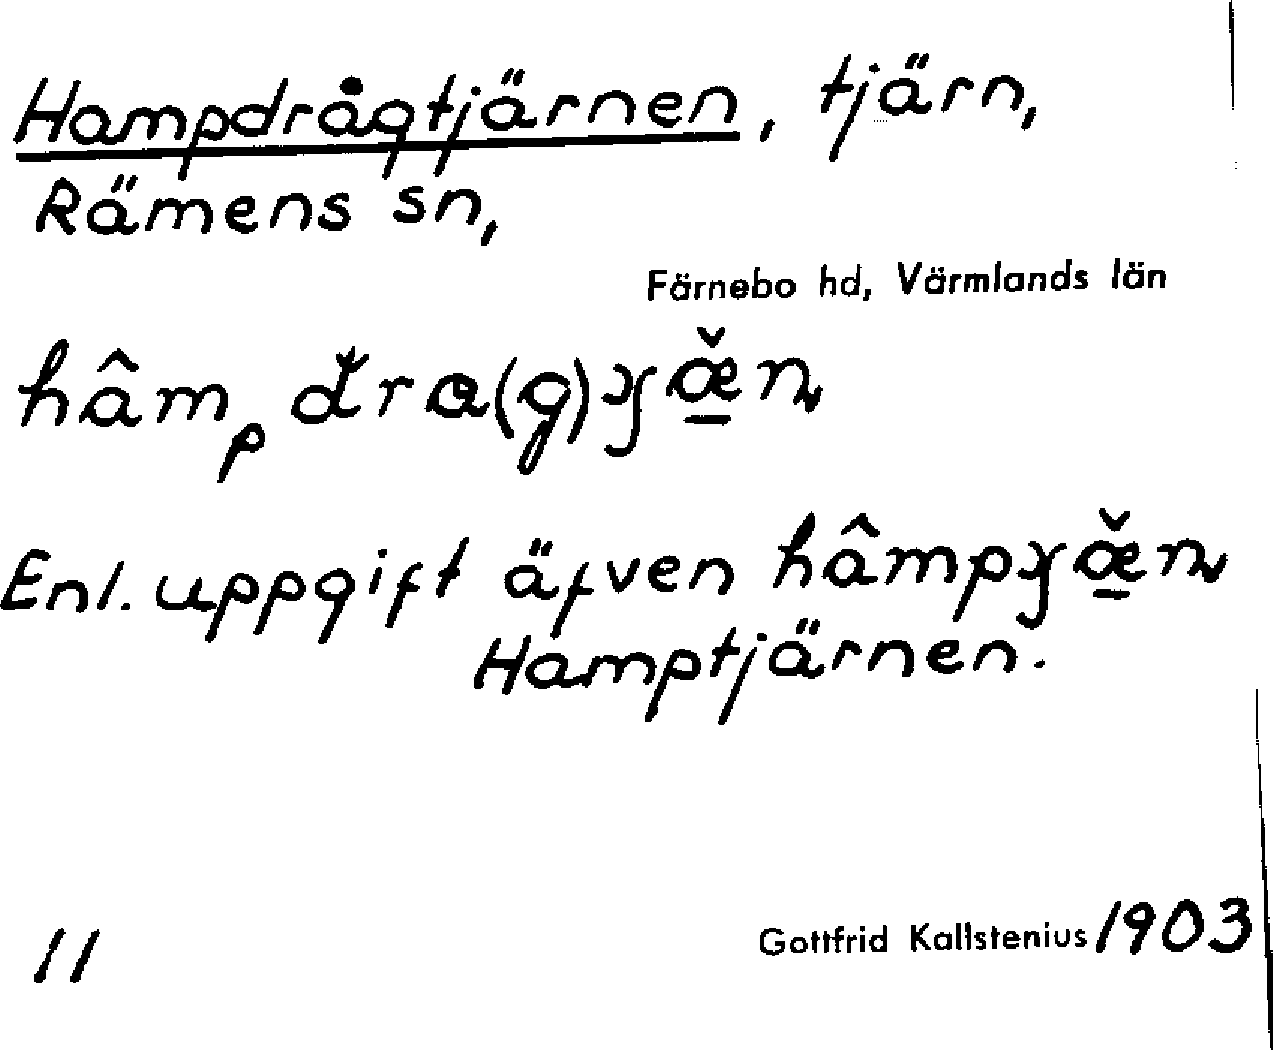 Hampdrågtjärnen, tjärn,
Rämens sn,
Färnebo hd, Värmlands län
Enl. uppgift äfven
Hamptjärnen.
11
Gottfrid Kallstenius 1903